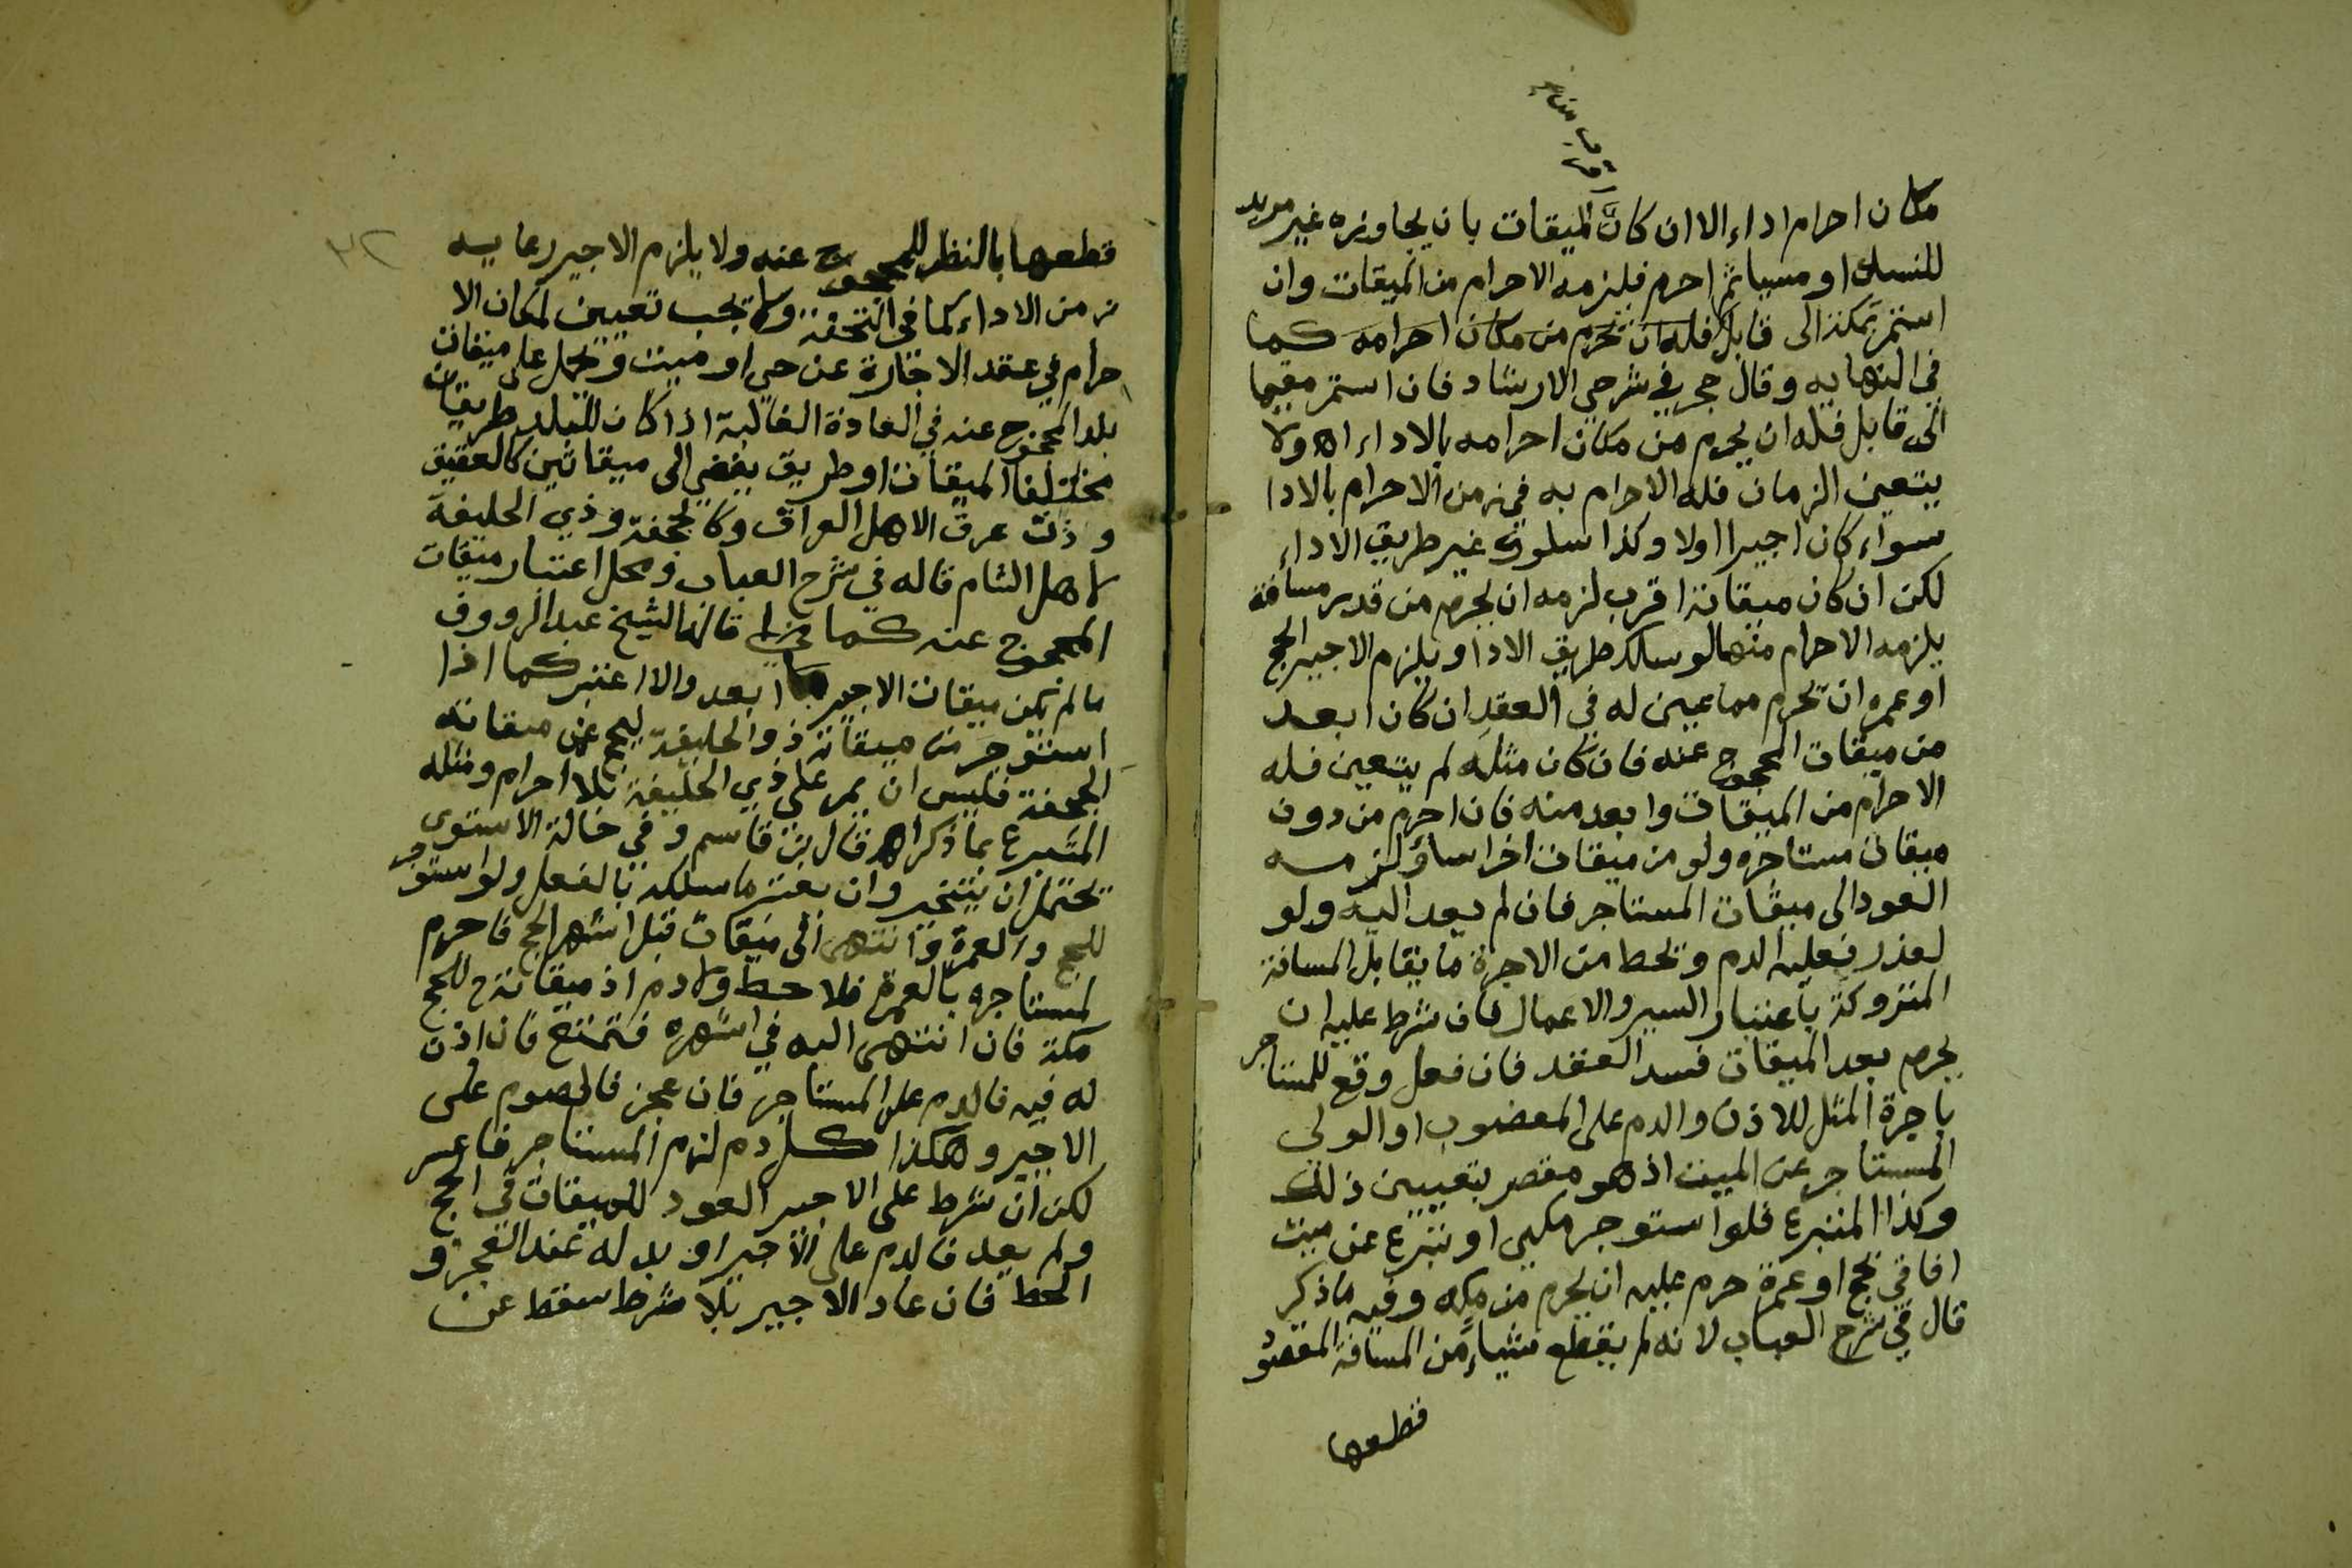 مكان احرام اداء الا ان كان الميقات بان يجاوزه غير مريد
للنسك او مسيا ثم احرم فيلزمه الاحرام من الميقات وان
استمر بمكة الى قابل فله ان يحرم من مكان احرامه كما
في النهايه وقال حجر في شرحي الارشاد فان استمر مقيما
الى قابل فله ان يحرم من مكان احرامه بالاداء اه ولا
يتعين الزمان فله الاحرام به في زمن الاحرام بالادا
سواء كان اجيرا اولا وكذا سلوك غير طريق الاداء
لكن ان كان ميقاته اقرب لزمه ان يحرم من قدر مسافة
يلزمه الاحرام منها لو سلك طريق الادا ويلزم الاجير الحج
او عمره ان يحرم مما عين له في العقد ان كان ابعد
من ميقات المحجوج عنه فان كان مثله لم يتعين فله
الاحرام من الميقات وابعد منه فان احرم من دون
ميقات مستاجره ولو من ميقات اخر اساؤ لزمه
العود الى ميقات المستاجر فان لم يعد اليه ولو
لعذر فعليه الدم وتحط من الاجرة ما يقابل المسافة
المتروكة باعتبار السير والاعمال فان شرط عليه ان
يحرم بعد الميقات فسد العقد فان فعل وقع للمستاجر
باجرة المثل للاذن والدم على المعضوب او الولي
المستاجر عن الميت اذ هو مقصر بتعيين ذلك
وكذا المتبرع فلو استوجر مكيي او تبرع عن ميت
افاقي بحج او عمرة حرم عليه ان يحرم من مكه وفيه ماذكر
قال في شرح العباب لانه لم يقطع شياء من المسافة المقصود
قطعها
قطعها بالنظر للمحجوج عنه ولا يلزم الاجير رعايه
زمن الاداء كما في التحفة ولا تجب تعيين لمكان الا
حرام في عقد الاجارة عن حي او ميت ويحمل على ميقات
بلد المحجوج عنه في العادة الغالبة اذا كان للبلد طريقان
مختلفا الميقات او طريق يفضي الى ميقاتين كالعقيق
وذت عرق الاهل العراق وكالجحفة وذي الحليفة
لاهل الشام قاله في شرح العباب ومحل اعتبار ميقات
المحجوج عنه كما قالها الشيخ عبد الرووف
ما لم يكن ميقات الاجير ابعد والا اعتبر كما اذا
استوجر من ميقاته ذو الحليفة ليحج عن ميقاته
الجحفة فليس ان يمر على ذي الحليفة بلا احرام ومثله
المتبرع بما ذكر اه قال بن قاسم وفي حالة الاستوى
يحتمل ان يتخير وان يعتبر ما سلكه بالفعل ولو استوجر
للحج والعمرة وانتهى الى ميقات قبل اشهر الحج فاحرم
لمستاجره بالعمرة فلا حط ولا دم اذ ميقاته ح للحج
مكة فان انتهى اليه في اشهره فتمتع فان اذن
له فيه فالدم على المستاجر فان عجز فالصوم على
الاجير وهكذا كل دم لزم المستاجر فاعسر
لكن ان شرط على الاجير العود للميقات في الحج
ولم يعد فالدم على الاجير او بدله عند العجز و
الحط فان عاد الاجير بلا شرط سقط عن